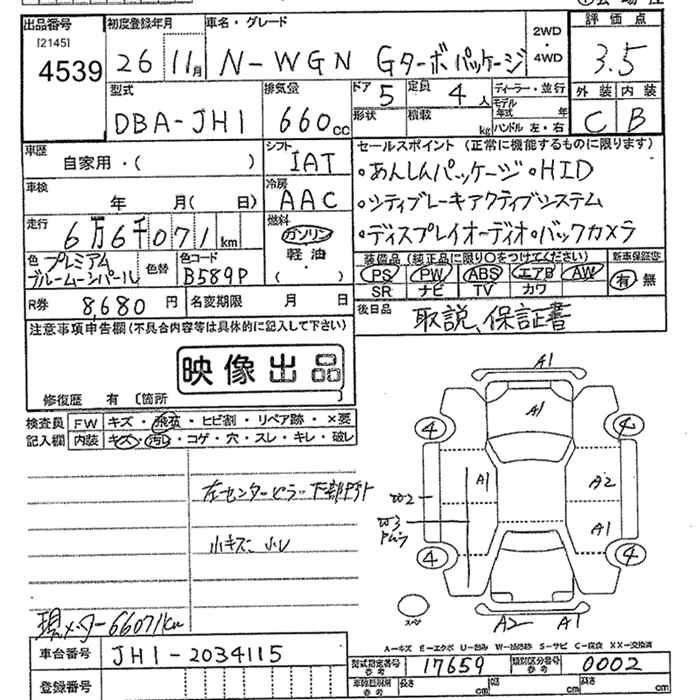 出品番号 初度登録年月 車名・グレード 2WD ・ 4WD 評価点
[2145]
4539 26 11月 N-WGN Gターボパッケージ 3.5
型式 排気量 ドア 定員 ディーラー・並行 外装 内装
DBA-JH1 660cc 5 4人 モデル年式 年 C B
形状 積載 kg ハンドル 左・右
車歴 自家用・( ) シフト IAT セールスポイント (正常に機能するものに限ります)
・あんしんパッケージ・HID
車検 年 月( 日) 冷房 AAC ・シティブレーキアクティブシステム
走行 6万6千071km 燃料 ガソリン 軽油 ( ・ ) ・ディスプレイオーディオ・バックカメラ
色 プレミアムブルームーンパール 色替 色コード B589P
装備品 (純正品に限り○をつけてください) 新車保証書
PS PW ABS エアB AW 有・無
SR ナビ TV カワ
R券 8,680円 名変期限 月 日 後日品 取説、保証書
注意事項申告欄(不具合内容等は具体的に記入して下さい)
映像出品
修復歴 有 〔箇所
検査員記入欄 FW キズ・飛石・ヒビ割・リペア跡・×要
内装 キズ・汚れ・コゲ・穴・スレ・キレ・破レ
A1
A1
4 4
左センターピラー下部 A1 A2
W2
W3 A1
小キズ、
4 4
現メーター66071km
スペア A2 A1
A=キズ E=エクボ U=凹み W=波跡 S=サビ C=腐食 XX=交換済
車台番号 JH1-2034115 型式指定番号 参考 17659 類別区分番号 参考 0002
登録番号 長さ cm 幅 cm 高さ cm